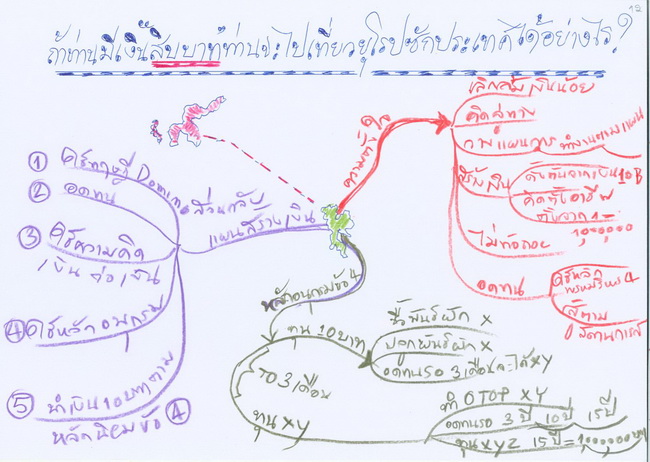 12
ถ้าท่านมีเงินสิบบาทท่านจะไปเที่ยวยุโรปซักประเทศได้อย่างไร?
เลิกกลัวเงินน้อย
คิดสู่ทาง
วางแผนการ ทำงานตามแผน
ความตั้งใจ
สร้างเงิน
ตั้งต้นจากเงิน 10 B
คิดทั้งอาชีพ
ไม่ท้อถอย
1,000,000
อดทน
ใช้หลัก
พรหมวิหาร 4
สู้ตาม
① ใช้ทฤษฎี Domino
② อดทน
③ ใช้ความคิด
เงินต่อเงิน
④ ใช้หลักอนุกรม
⑤ นำเงิน 10 บาทตาม
หลักนิยมข้อ ④
ส่วนกลับ
แผนสร้างเงิน
หลักอนุกรมข้อ 4
ทุน 10 บาท
ซื้อพันธ์ผัก X
ปลูกพันธ์ผัก X
อดทนรอ 3 เดือนจะได้ XY
TO 3 เดือน
ทุน XY
ทำ OTOP XY
อดทนรอ 3 ปี 10 ปี 15 ปี
ทุน XYZ 15 ปี = 1,000,000 บาท